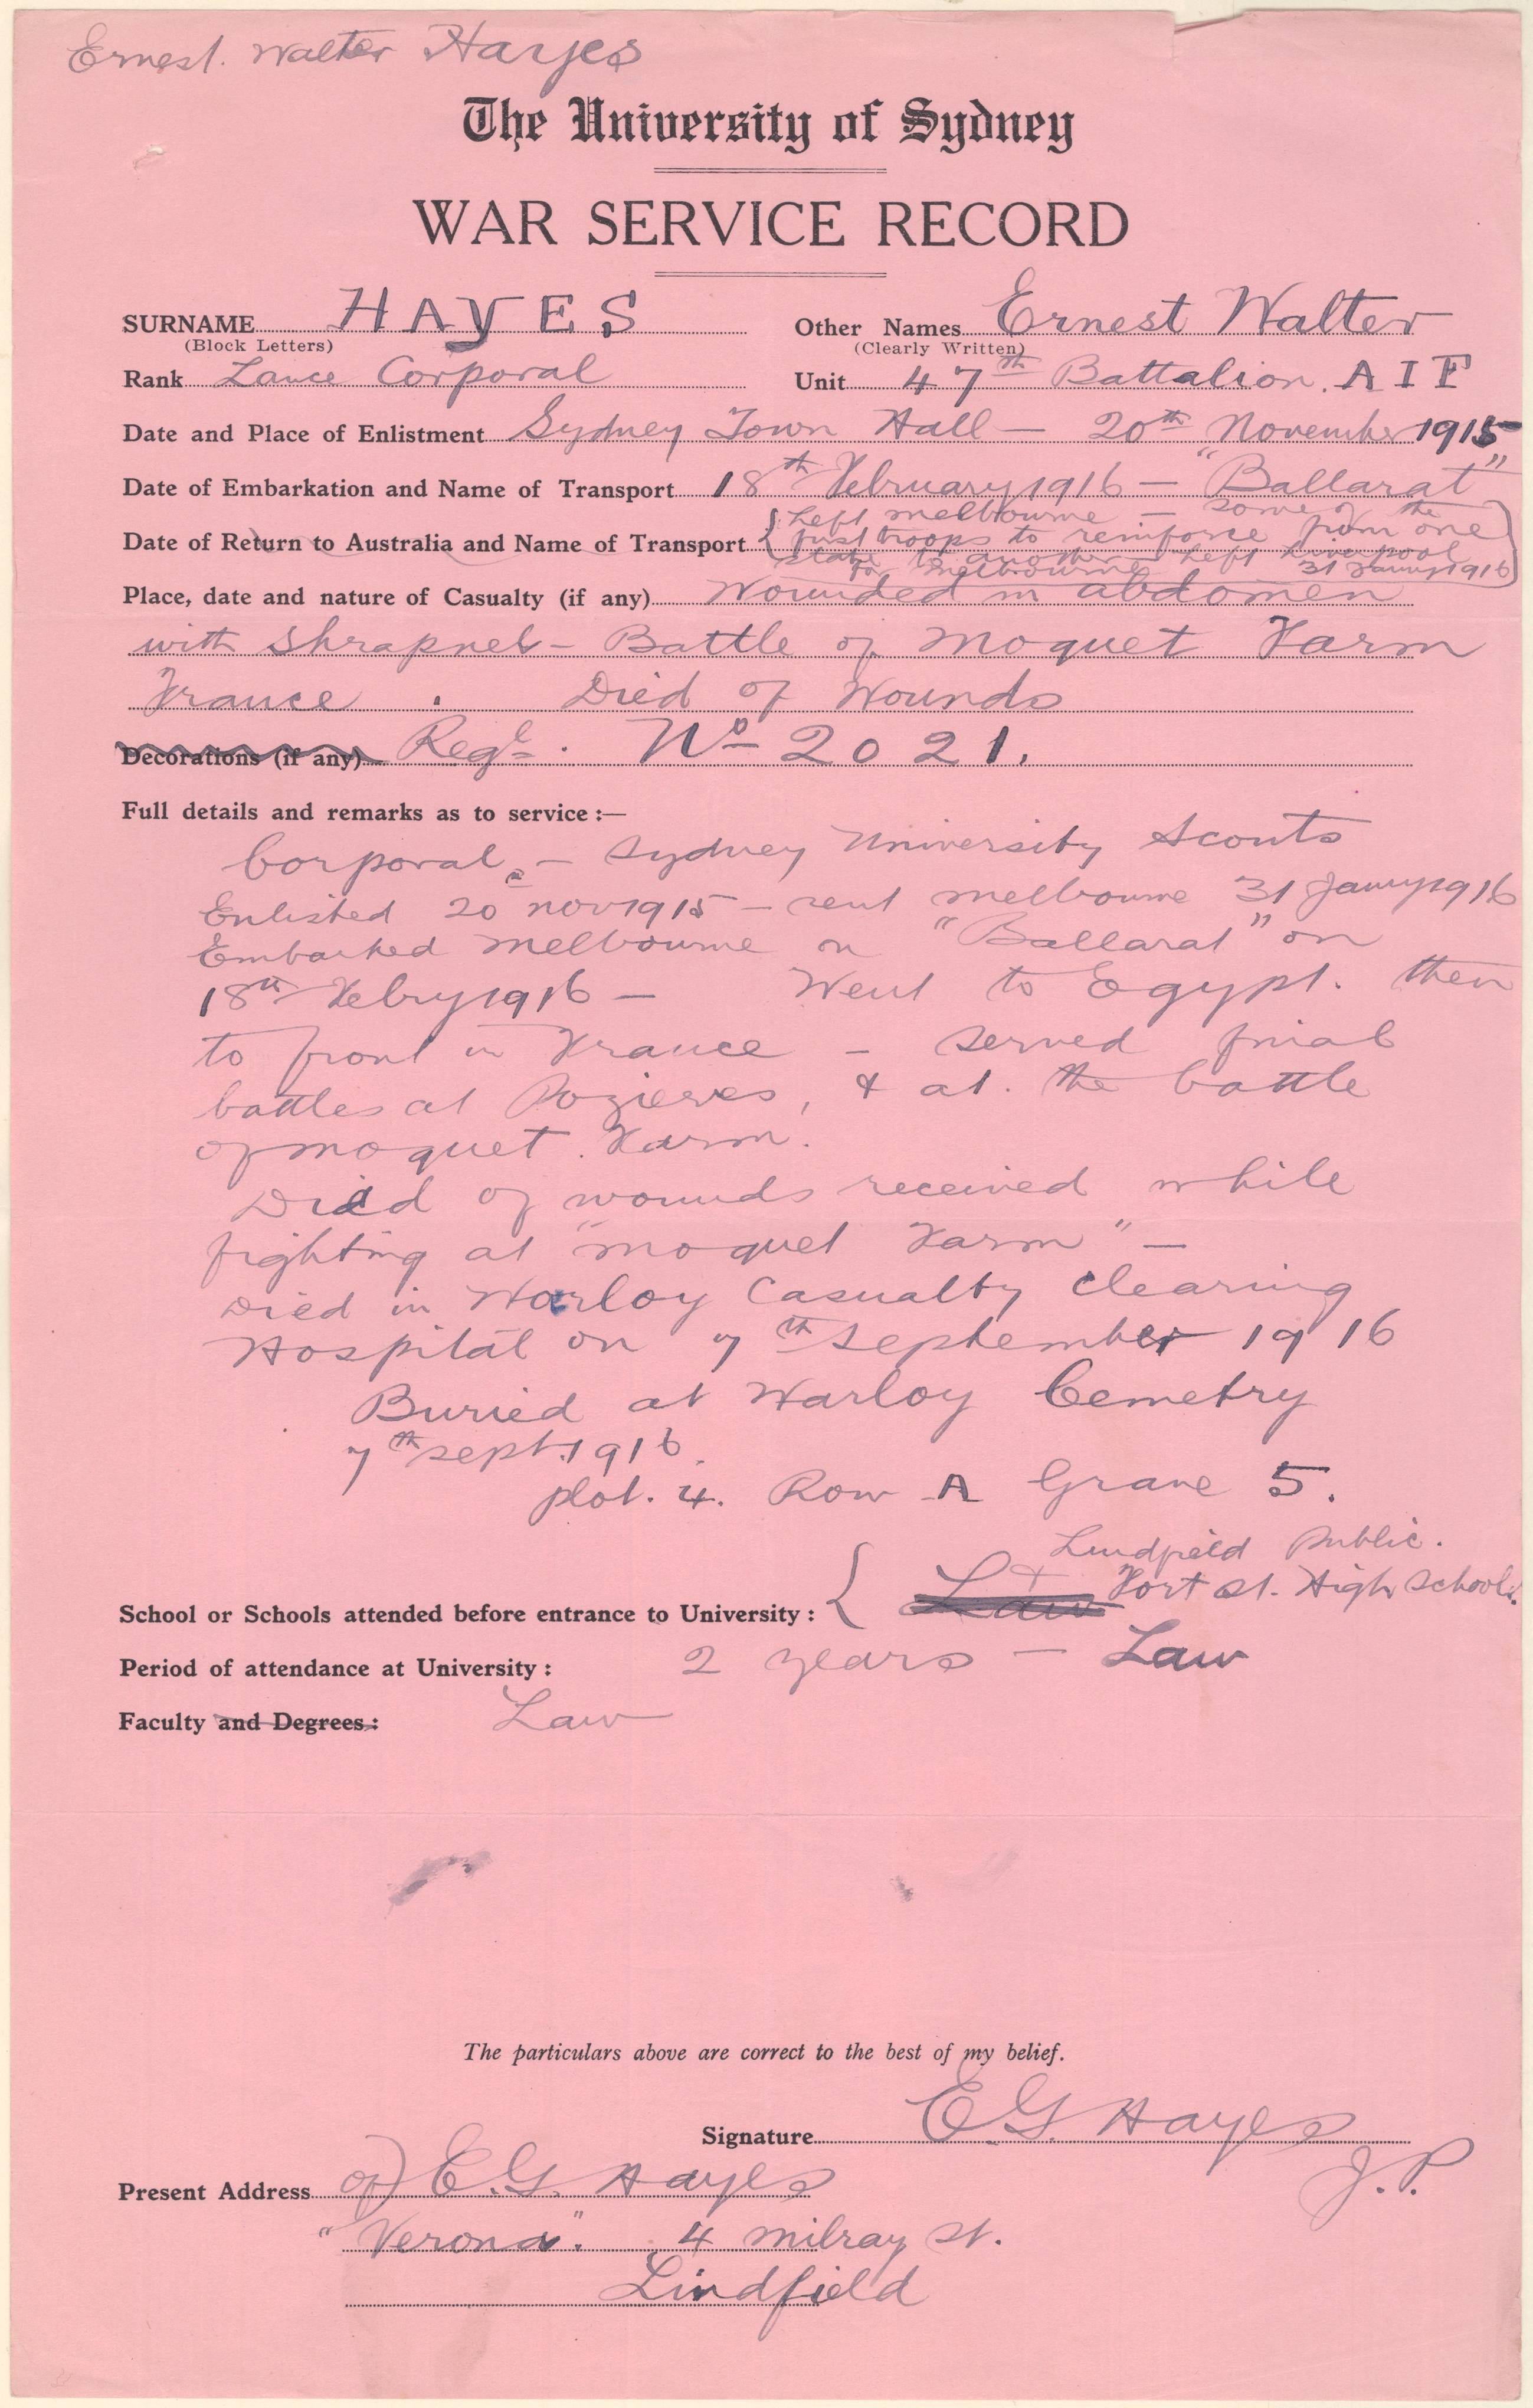 Ernest. Walter Hayes
The University of Sydney
WAR SERVICE RECORD
SURNAME HAYES Other Names Ernest Walter
(Block Letters) (Clearly Written)
Rank Lance Corporal Unit 47th Battalion. A I F
Date and Place of Enlistment Sydney Town Hall — 20th November 1915
Date of Embarkation and Name of Transport 18th February 1916 — "Ballarat"
{ Left Melbourne — some of the
Date of Return to Australia and Name of Transport first troops to reinforce from one
state to another Left Liverpool
for Melbourne 31 Janry 1916
Place, date and nature of Casualty (if any) Wounded in abdomen
with Shrapnel - Battle of Moquet Farm
France . Died of Wounds
Decorations (if any) Regl. No 2021.
Full details and remarks as to service :—
Corporal. — Sydney University Scouts
Enlisted 20 Nov 1915 — sent Melbourne 31 Janry 1916
Embarked Melbourne on "Ballarat" on
18th Febry 1916 — Went to Egypt. then
to front in France — served
battles at Pozieres, & at. the battle
of Moquet. Farm.
Died of wounds received while
fighting at "Moquet Farm" —
Died in Warloy Casualty Clearing
Hospital on 7th September 1916
Buried at Warloy Cemetry
7th Sept. 1916.
plot. 4. Row A Grave 5.
Lindfield Public.
School or Schools attended before entrance to University : { Law + Fort St. High School.
Period of attendance at University : 2 years — Law
Faculty and Degrees : Law
The particulars above are correct to the best of my belief.
Signature E. G. Hayes
J.P.
Present Address of) E. G. Hayes
"Verona". 4 Milray St.
Lindfield